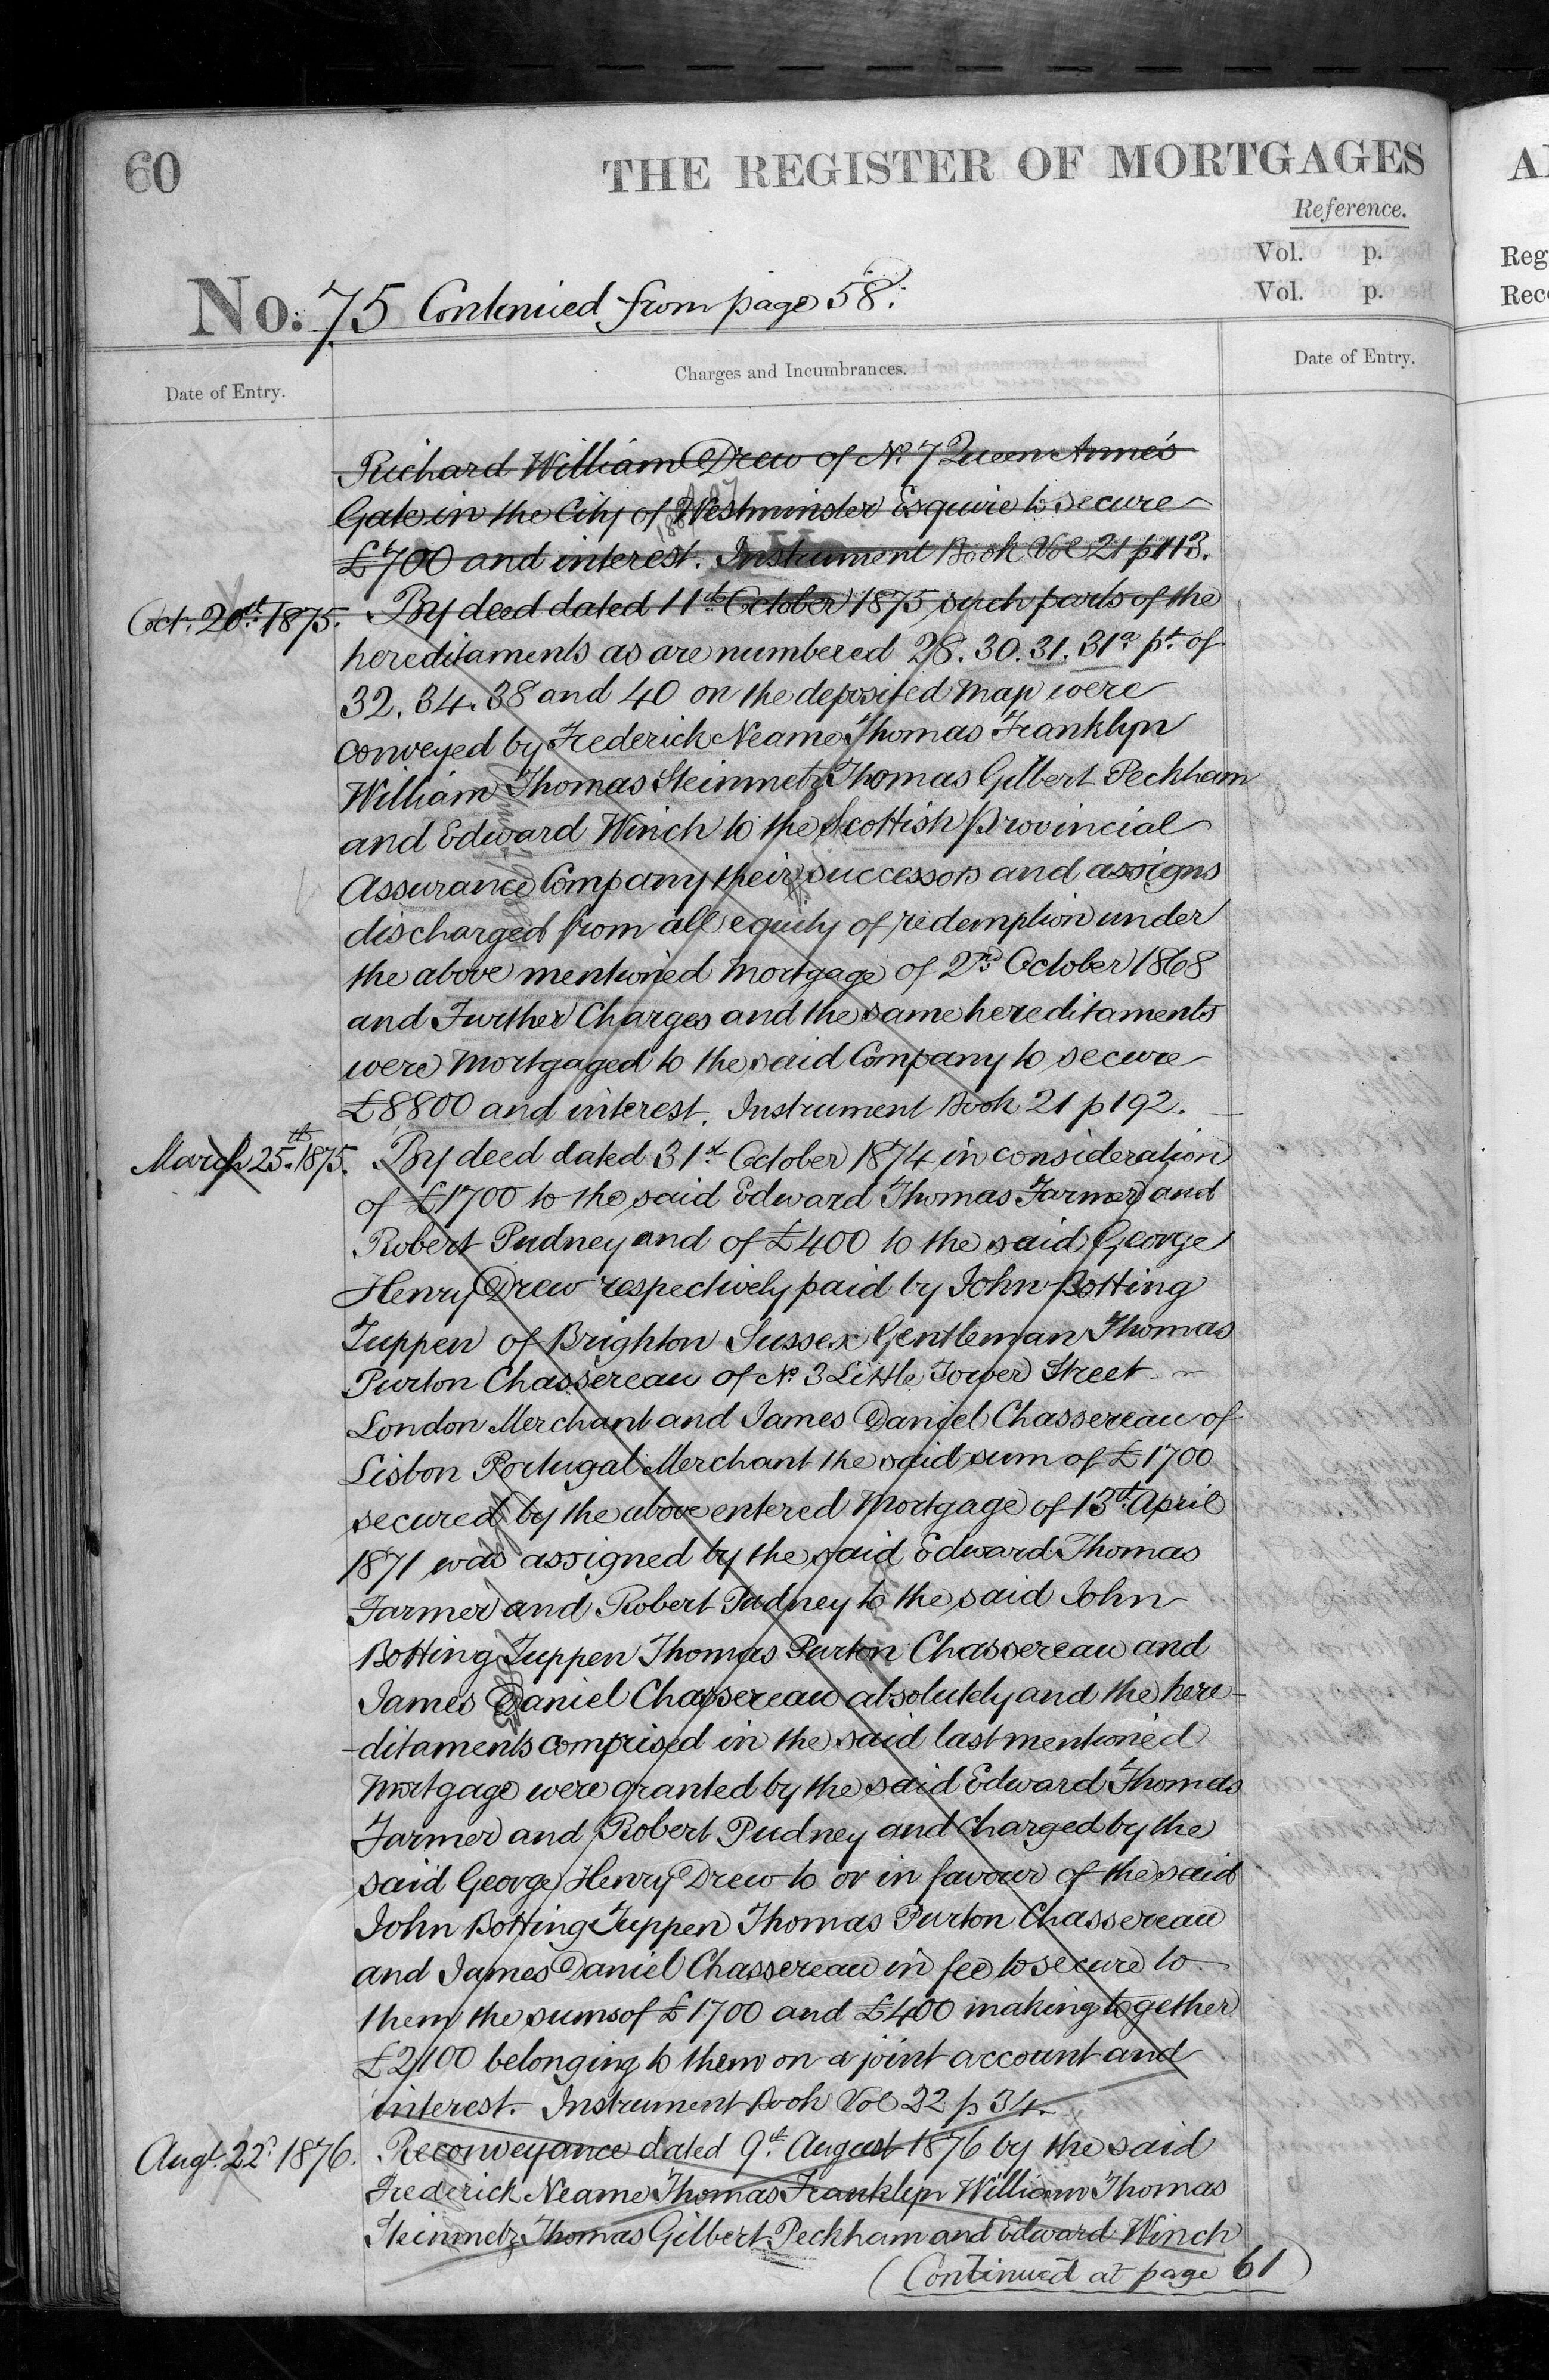 60
THE REGISTER OF MORTGAGES
Reference.
Vol. p.
Vol. p.
No: 75 Continued from page 58.
Date of Entry.
Charges and Incumbrances.
Date of Entry.
Richard William Drew of No. 7 Queen Anne's
Gate in the City of Westminster Esquire to secure
£700 and interest. Instrument Book Vol 21 p 113.
Oct. 20th 1875. By deed dated 11th October 1875 such parts of the
hereditaments as are numbered 28. 30. 31. 31a pt. of
32. 34. 38 and 40 on the deposited map were
conveyed by Frederick Neame Thomas Franklyn
William Thomas Steinmetz Thomas Gilbert Peckham
and Edward Winch to the Scottish Provincial
Assurance Company their successors and assigns
discharged from all equity of redemption under
the above mentioned Mortgage of 2nd October 1868
and Further Charges and the same hereditaments
were Mortgaged to the said Company to secure
£8800 and interest. Instrument Book 21 p 192.
March 25th 1875. By deed dated 31st October 1874 in consideration
of £1700 to the said Edward Thomas Farmer and
Robert Pudney and of £400 to the said George
Henry Drew respectively paid by John Botting
Tuppen of Brighton Sussex Gentleman Thomas
Purton Chassereau of No 3 Little Tower Street
London Merchant and James Daniel Chassereau of
Lisbon Portugal Merchant the said sum of £1700
secured by the above entered Mortgage of 13th April
1871 was assigned by the said Edward Thomas
Farmer and Robert Pudney to the said John
Botting Tuppen Thomas Purton Chassereau and
James Daniel Chassereau absolutely and the here-
-ditaments comprised in the said last mentioned
Mortgage were granted by the said Edward Thomas
Farmer and Robert Pudney and Charged by the
said George Henry Drew to or in favour of the said
John Botting Tuppen Thomas Purton Chassereau
and James Daniel Chassereau in fee to secure to
them the sums of £1700 and £400 making together
£2100 belonging to them on a joint account and
interest. Instrument Book Vol 22 p 34.
Augt. 22d 1876. Reconveyance dated 9th August 1876 by the said
Frederick Neame Thomas Franklyn William Thomas
Steinmetz Thomas Gilbert Peckham and Edward Winch
(Continued at page 61)
Reg
Rec